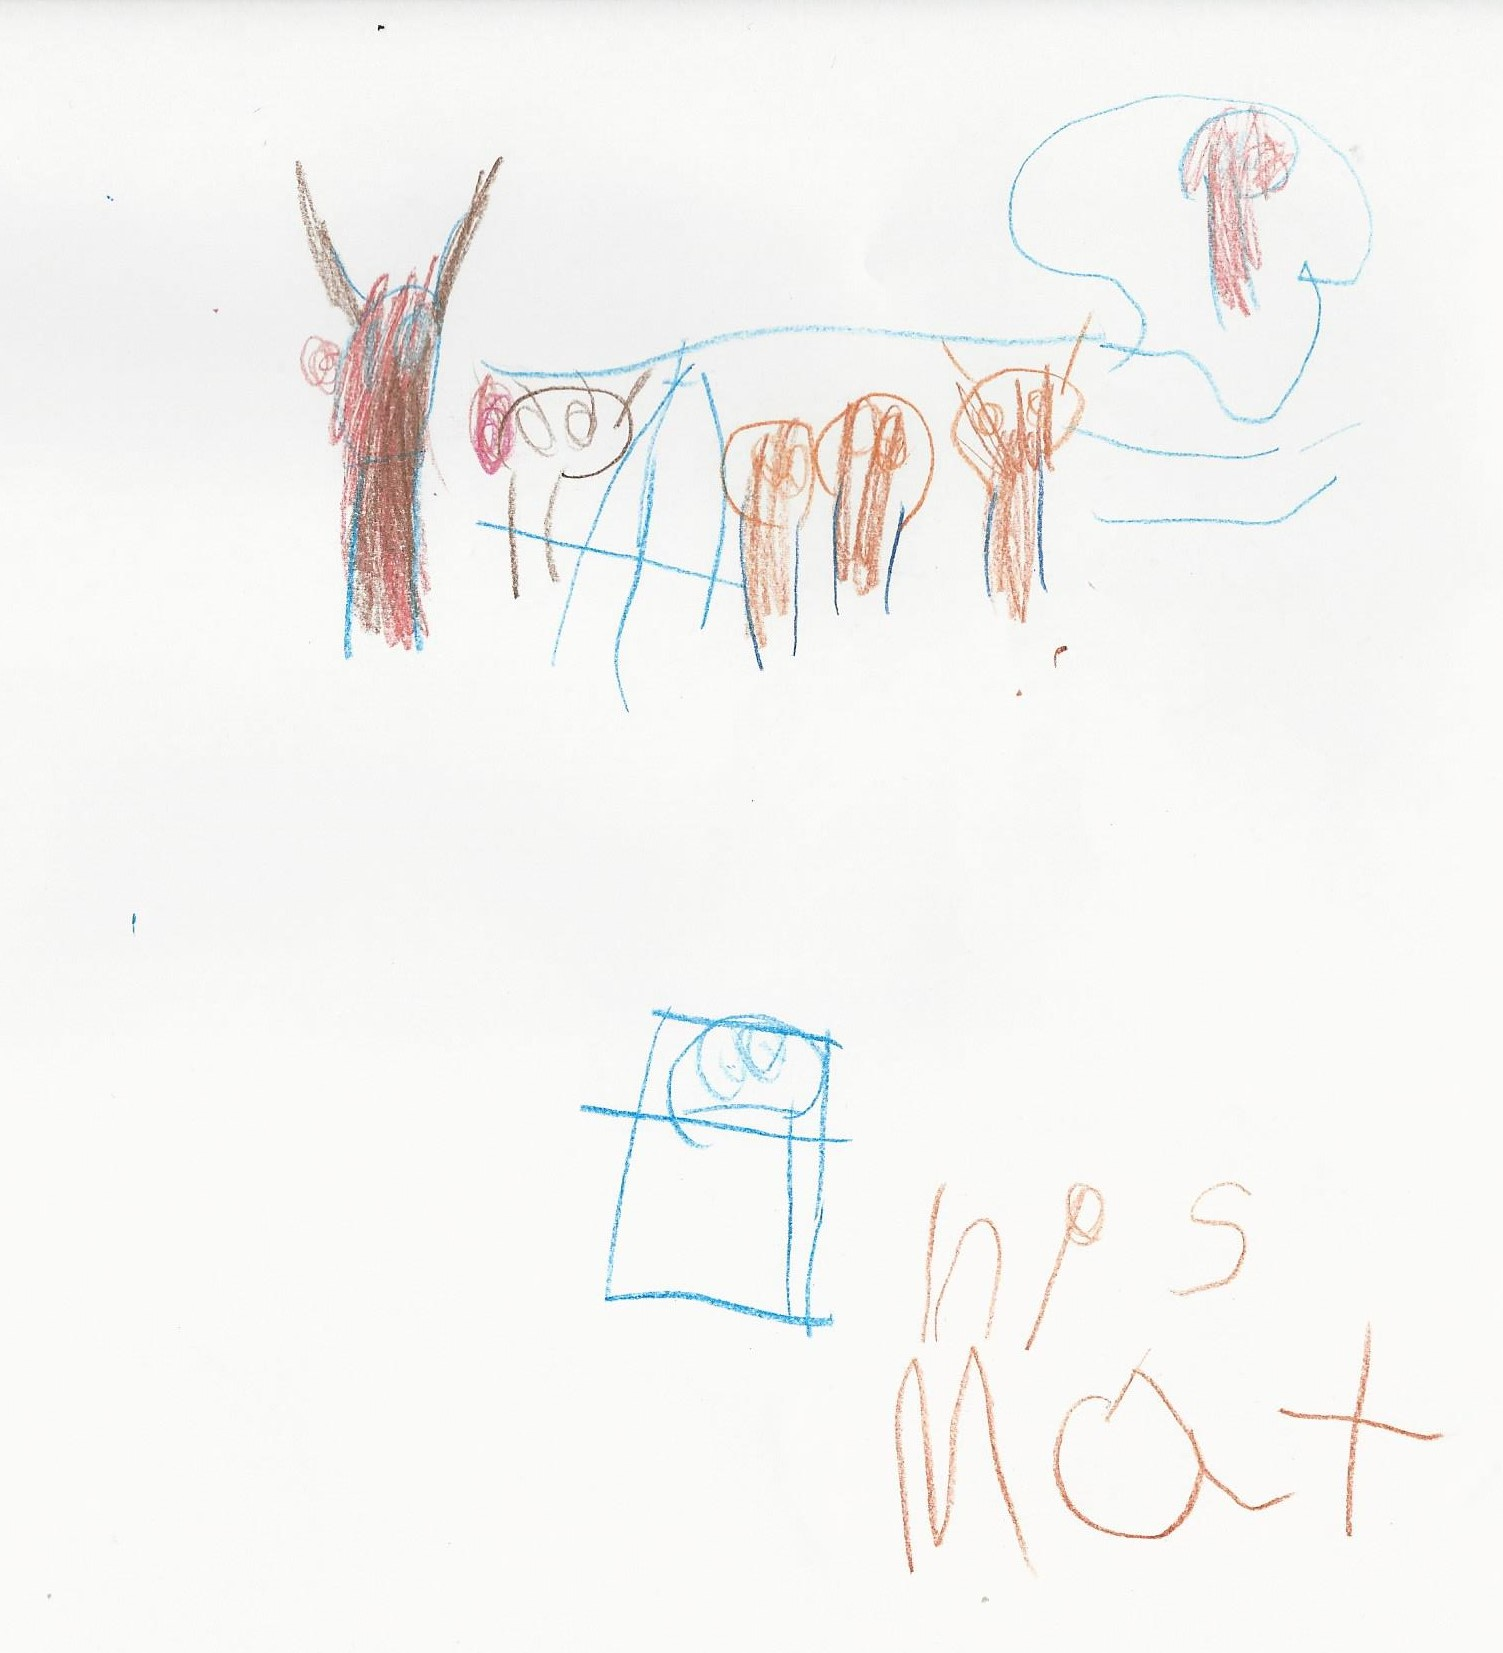 hps
Mat